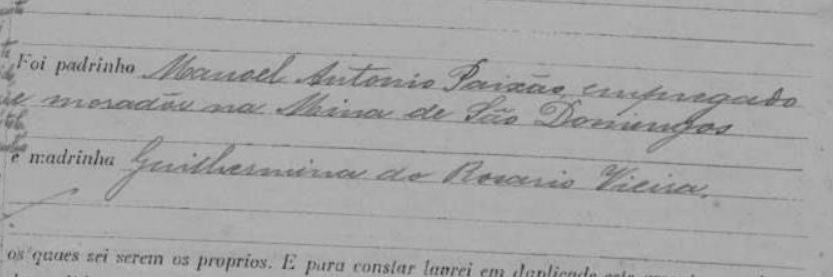 Foi padrinho Manoel Antonio Paixão, empregado
e moradôr na Mina de São Domingos
e madrinha Guilhermina do Rosario Vieira.
os quaes sei serem os proprios. E para constar lavrei em duplicado este